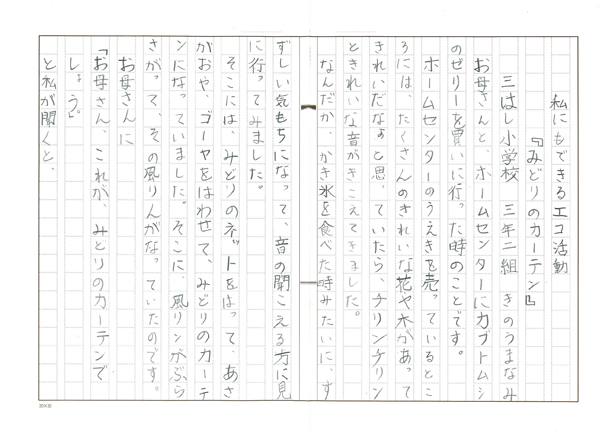 私にもできるエコ活動
『みどりのカーテン』
三はし小学校 三年二組 きのうまなみ
お母さんと、ホームセンターにカブトムシ
のゼリーを買いに行った時のことです。
ホームセンターのうえきを売っているとこ
ろには、たくさんのきれいな花や木があって
きれいだなぁと思っていたら、チリンチリン
ときれいな音がきこえてきました。
なんだか、かき氷を食べた時みたいに、す
ずしい気もちになって、音の聞こえる方に見
に行ってみました。
そこには、みどりのネットをはって、あさ
がおや、ゴーヤをはわせて、みどりのカーテ
ンになっていました。そこに、風リンがぶら
さがって、その風りんがなっていたのです。
お母さんに
「お母さん、これが、みどりのカーテンで
しょう。」
と私が聞くと、
20×20